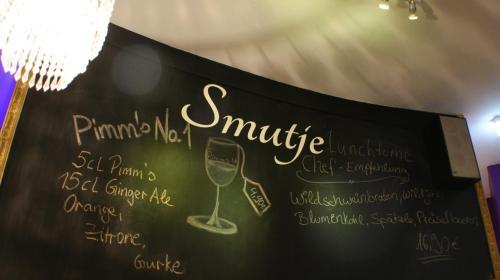 Smutje
Pimm's No. 1
5cl Pimm's
15cl Ginger Ale
Orange,
Zitrone,
Gurke
Lunchtime
Chef-Empfehlung
Wildschweinbraten,
Blumenkohl, Spätzle, Preiselbeeren
16,90 €